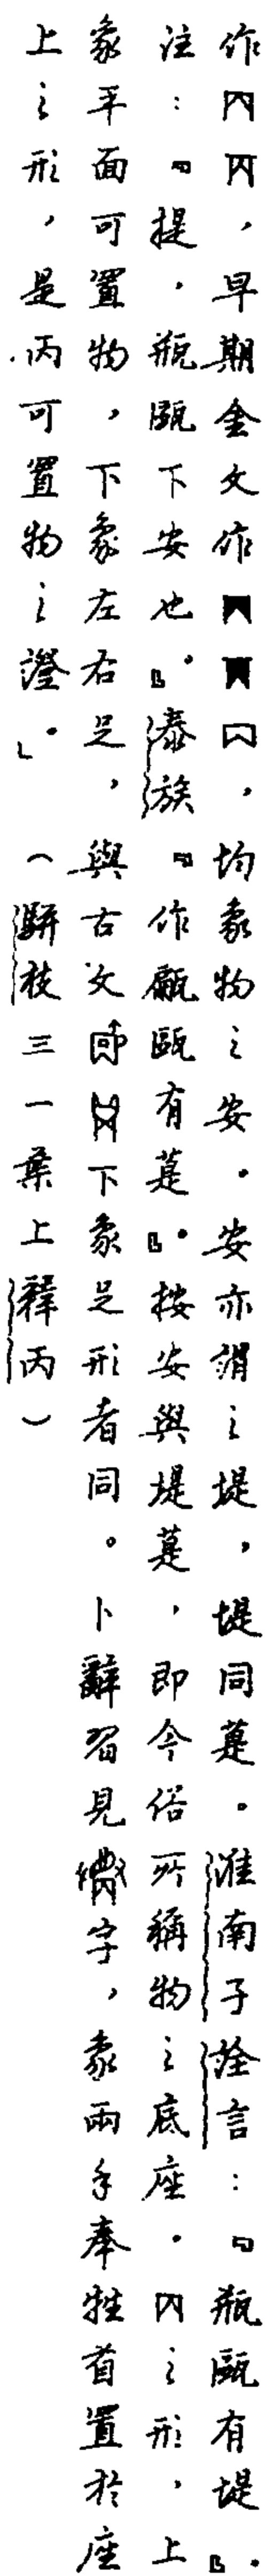 作，早期金文作，均象物之安。安亦謂之堤，堤同是。淮南子詮言：『瓶甌有堤』。
注：『提，瓶甌下安也』。泰族『作甂甌有是』。按安與堤是，即今俗所稱物之底座。之形，上
象平面可置物，下象左右足，與古文下象足形者同。卜辭習見字，象兩手奉牲首置於座
上之形，是丙可置物之證。」（駢枝三一葉上釋丙）